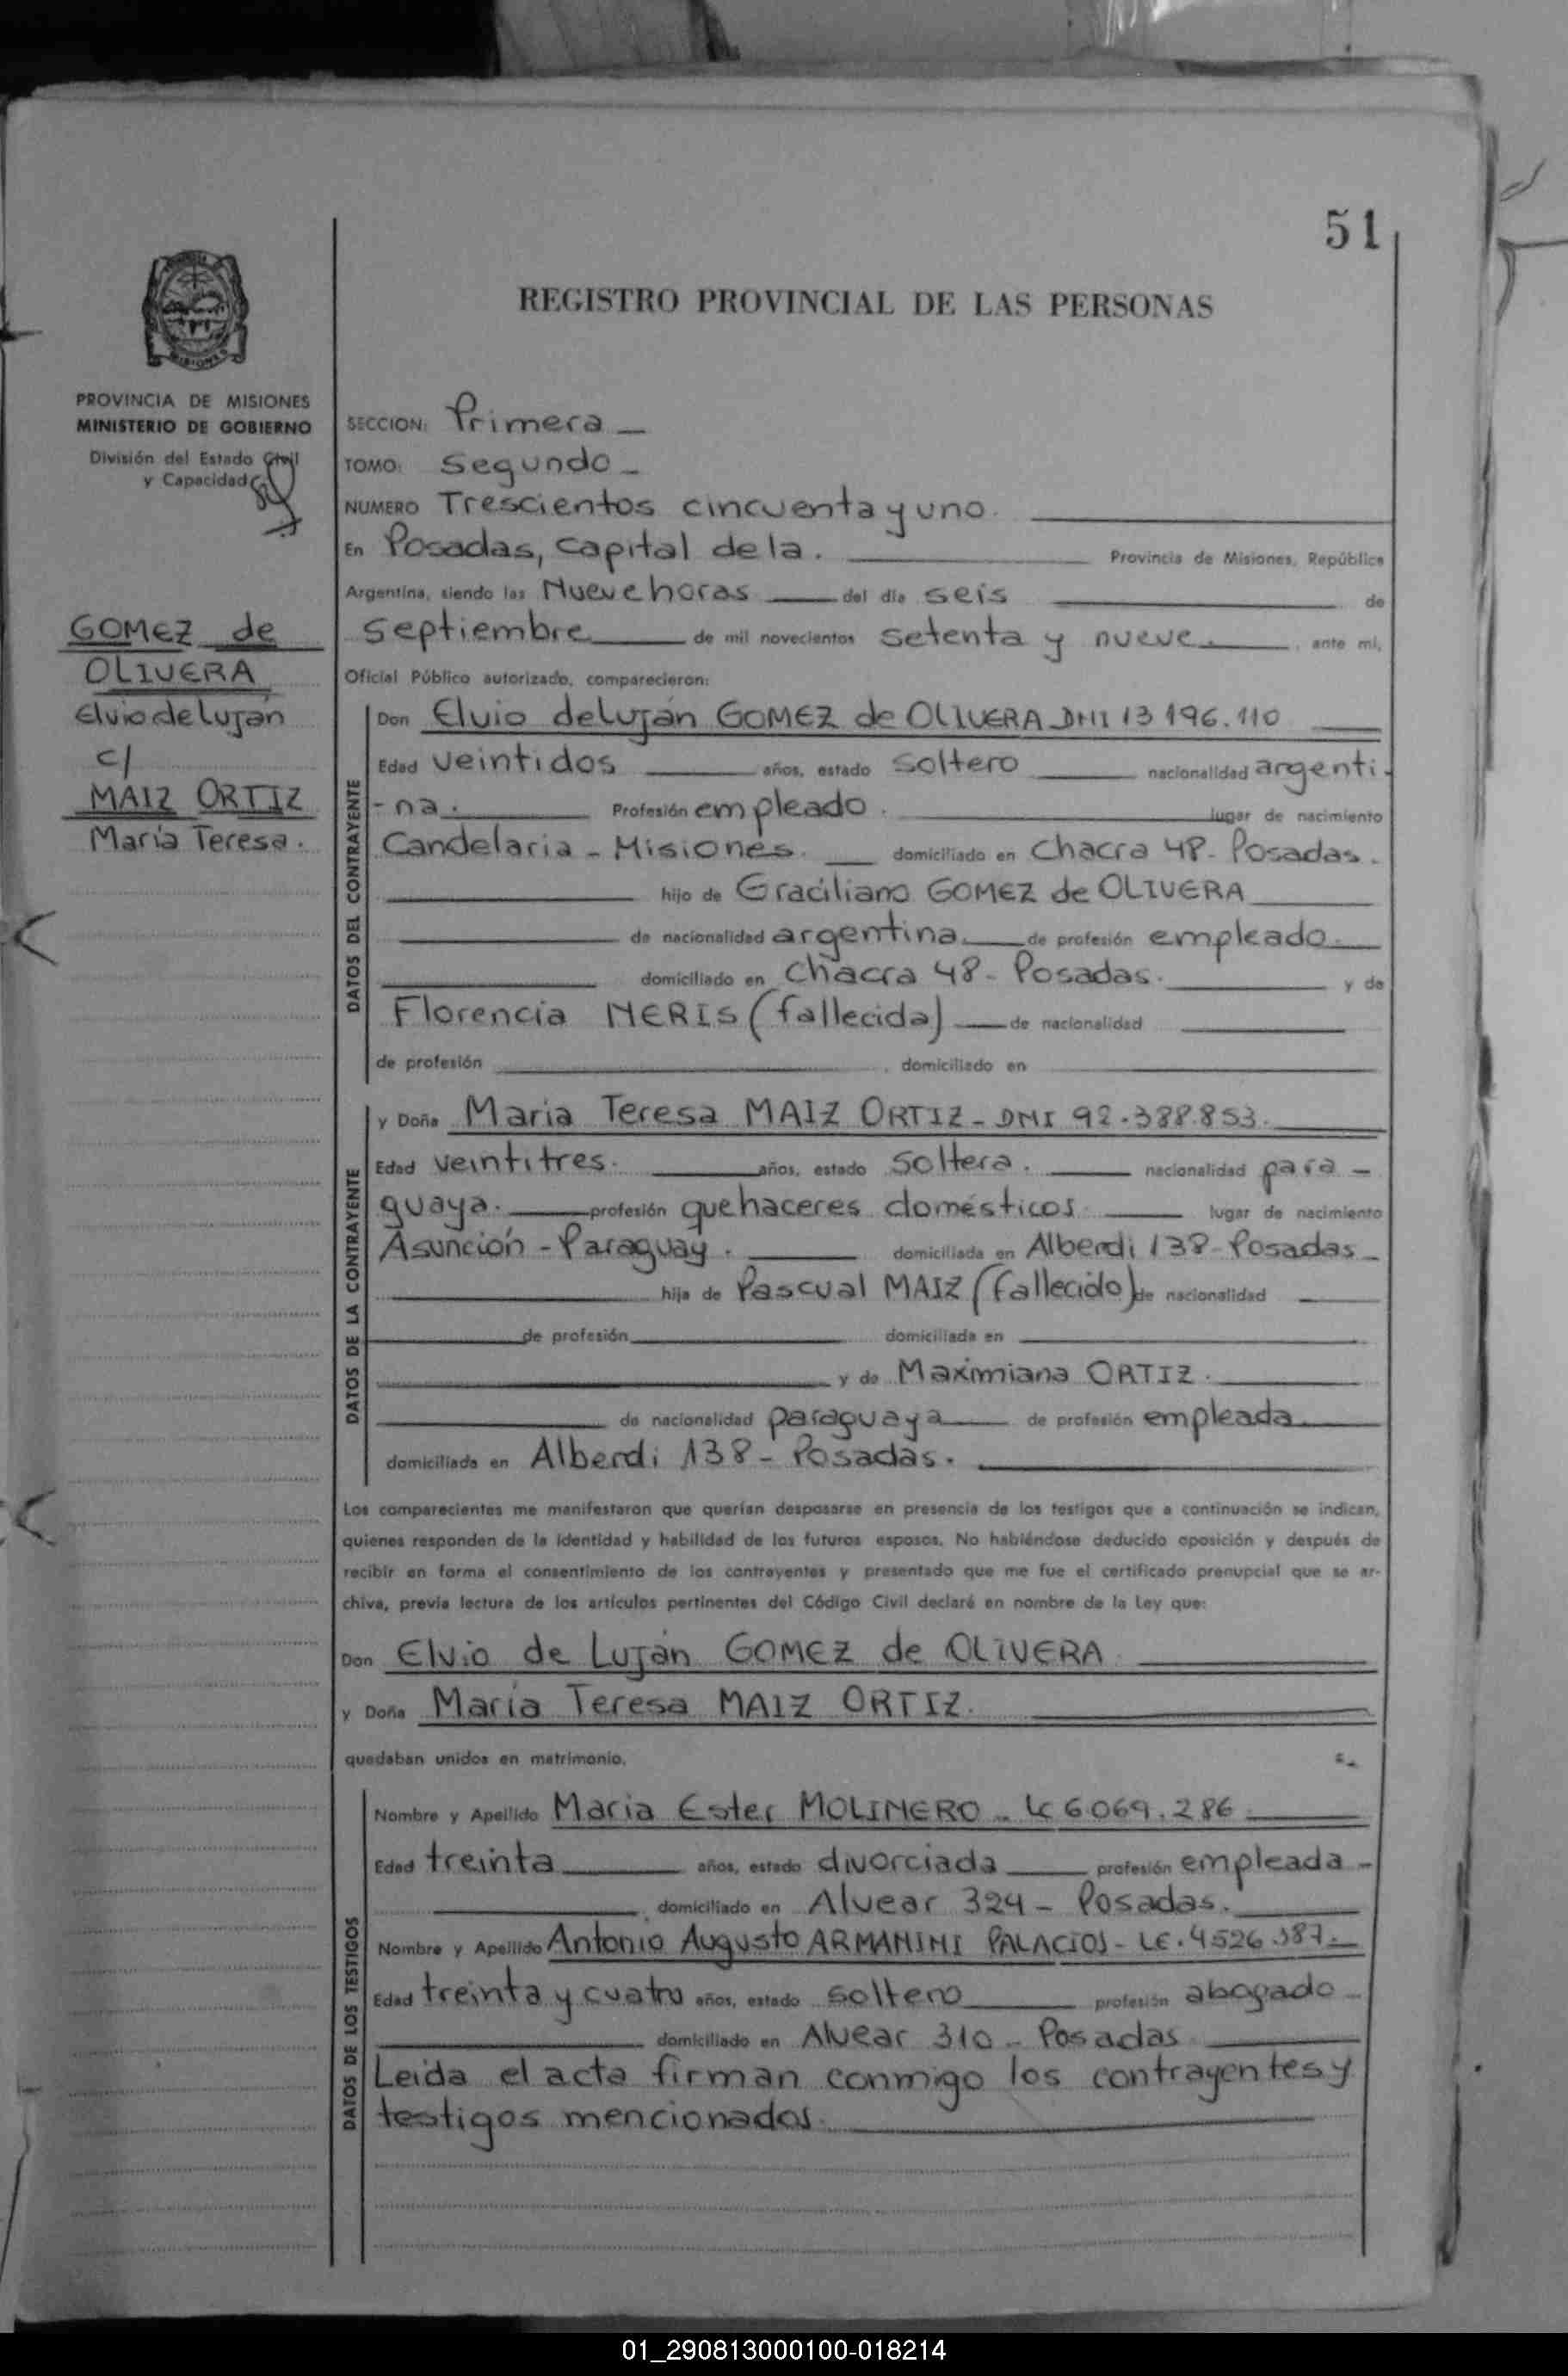 51
REGISTRO PROVINCIAL DE LAS PERSONAS
MISIONES
PROVINCIA DE MISIONES
MINISTERIO DE GOBIERNO
División del Estado Civil
y Capacidad
GOMEZ de
OLIVERA
Elvio de Luján
c/
MAIZ ORTIZ
María Teresa.
SECCION: Primera
TOMO: Segundo
NUMERO Trescientos cincuenta y uno.
En Posadas, capital de la. Provincia de Misiones, República
Argentina, siendo las Nueve horas del día seis de
septiembre de mil novecientos setenta y nueve. , ante mi,
Oficial Público autorizado, comparecieron:
DATOS DEL CONTRAYENTE
Don Elvio de Luján GOMEZ de OLIVERA DNI 13 196.110
Edad veintidos años, estado soltero nacionalidad argenti-
-na. Profesión empleado. lugar de nacimiento
Candelaria - Misiones. domiciliado en Chacra 48 - Posadas.
hijo de Graciliano GOMEZ de OLIVERA
de nacionalidad argentina de profesión empleado.
domiciliado en Chacra 48 - Posadas. y de
Florencia NERIS (fallecida) de nacionalidad
de profesión , domiciliado en
DATOS DE LA CONTRAYENTE
y Doña María Teresa MAIZ ORTIZ - DNI 92.388.853.
Edad veintitres. años, estado soltera. nacionalidad para-
guaya. profesión quehaceres domésticos lugar de nacimiento
Asunción - Paraguay. domiciliada en Alberdi 138 - Posadas
hija de Pascual MAIZ (fallecido) de nacionalidad
de profesión domiciliada en
y de Maximiana ORTIZ.
de nacionalidad paraguaya de profesión empleada
domiciliada en Alberdi 138 - Posadas.
Los comparecientes me manifestaron que querían desposarse en presencia de los testigos que a continuación se indican,
quienes responden de la identidad y habilidad de los futuros esposos. No habiéndose deducido oposición y después de
recibir en forma el consentimiento de los contrayentes y presentado que me fue el certificado prenupcial que se ar-
chiva, previa lectura de los artículos pertinentes del Código Civil declaré en nombre de la Ley que:
Don Elvio de Luján GOMEZ de OLIVERA
y Doña María Teresa MAIZ ORTIZ.
quedaban unidos en matrimonio.
DATOS DE LOS TESTIGOS
Nombre y Apellido María Ester MOLINERO - LC 6.069.286
Edad treinta años, estado divorciada profesión empleada -
domiciliado en Alvear 324 - Posadas.
Nombre y Apellido Antonio Augusto ARMANINI PALACIOS - LE. 4526.387.
Edad treinta y cuatro años, estado soltero profesión abogado -
domiciliado en Alvear 310 - Posadas
Leída el acta firman conmigo los contrayentes y
testigos mencionados.
01_290813000100-018214